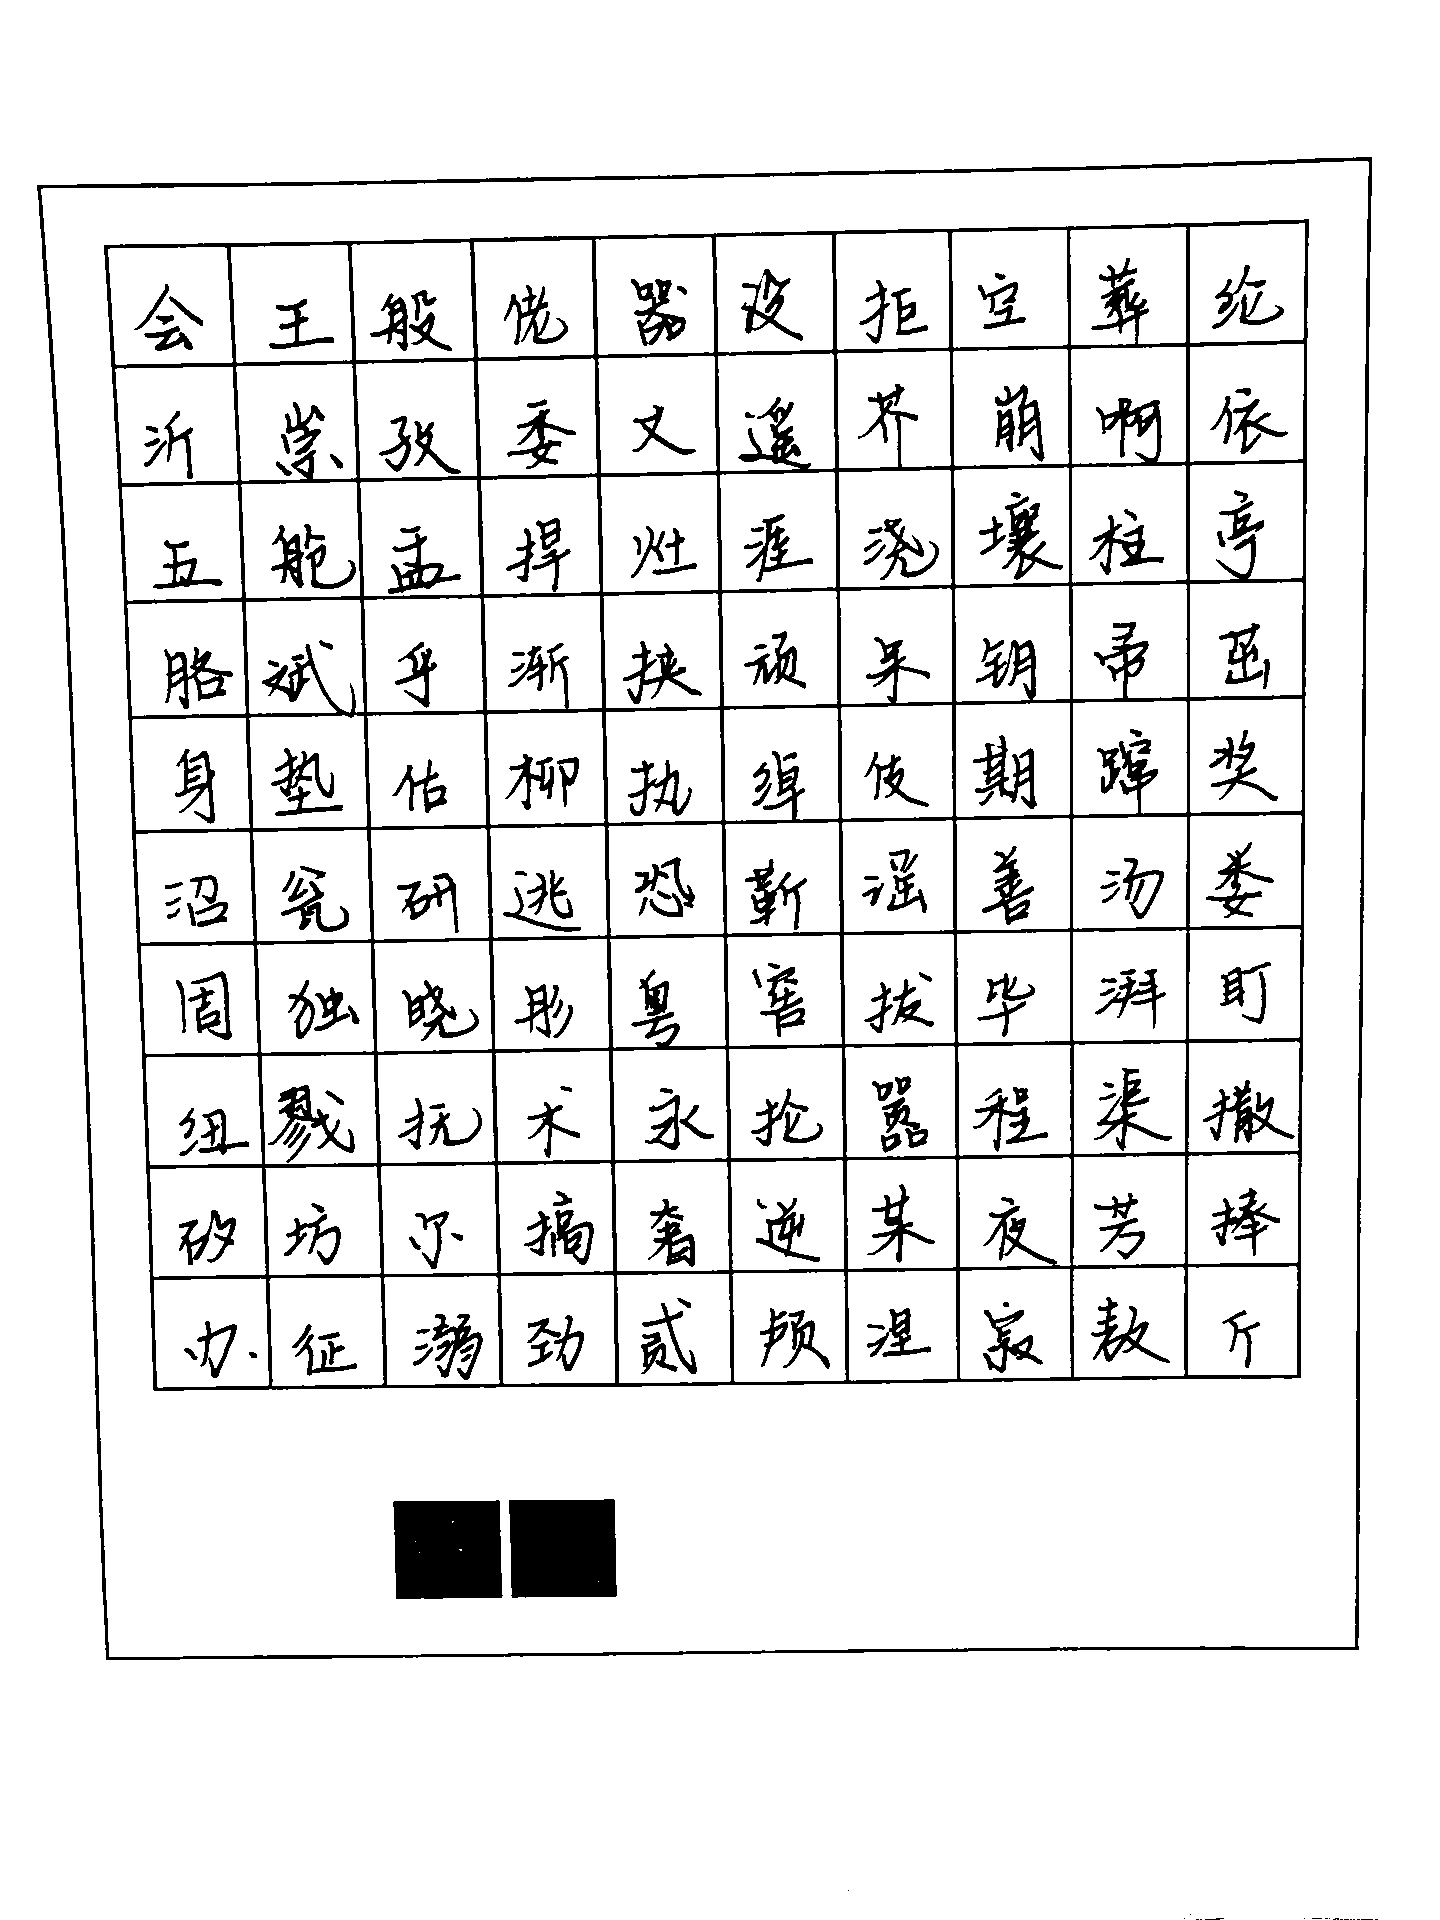 会王般佬器没拒空葬纶
沂崇孜委丈遥芥崩啊依
五舱盂捍灶涯浇壤柱亭
胳斌乎渐挟顽呆钥帚茁
身垫估柳执绰伎期蹿奖
沼瓮研逃恐蕲谣善汤娄
周独晓彤粤窖拔毕湃盯
纽戮抚术永抡嚣程渠撒
矽坊尔搞奢逆某夜芳捧
办征溺劲贰颅涅寂敖斤